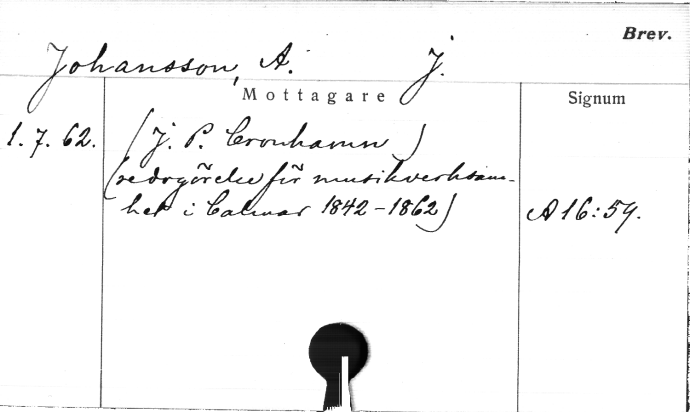 Brev.
Johansson, A. J.
Mottagare
Signum
1.7.62. (J. P. Cronhamn)
(redogörelse för musikverksam-
het i Calmar 1842-1862) A 16:59.